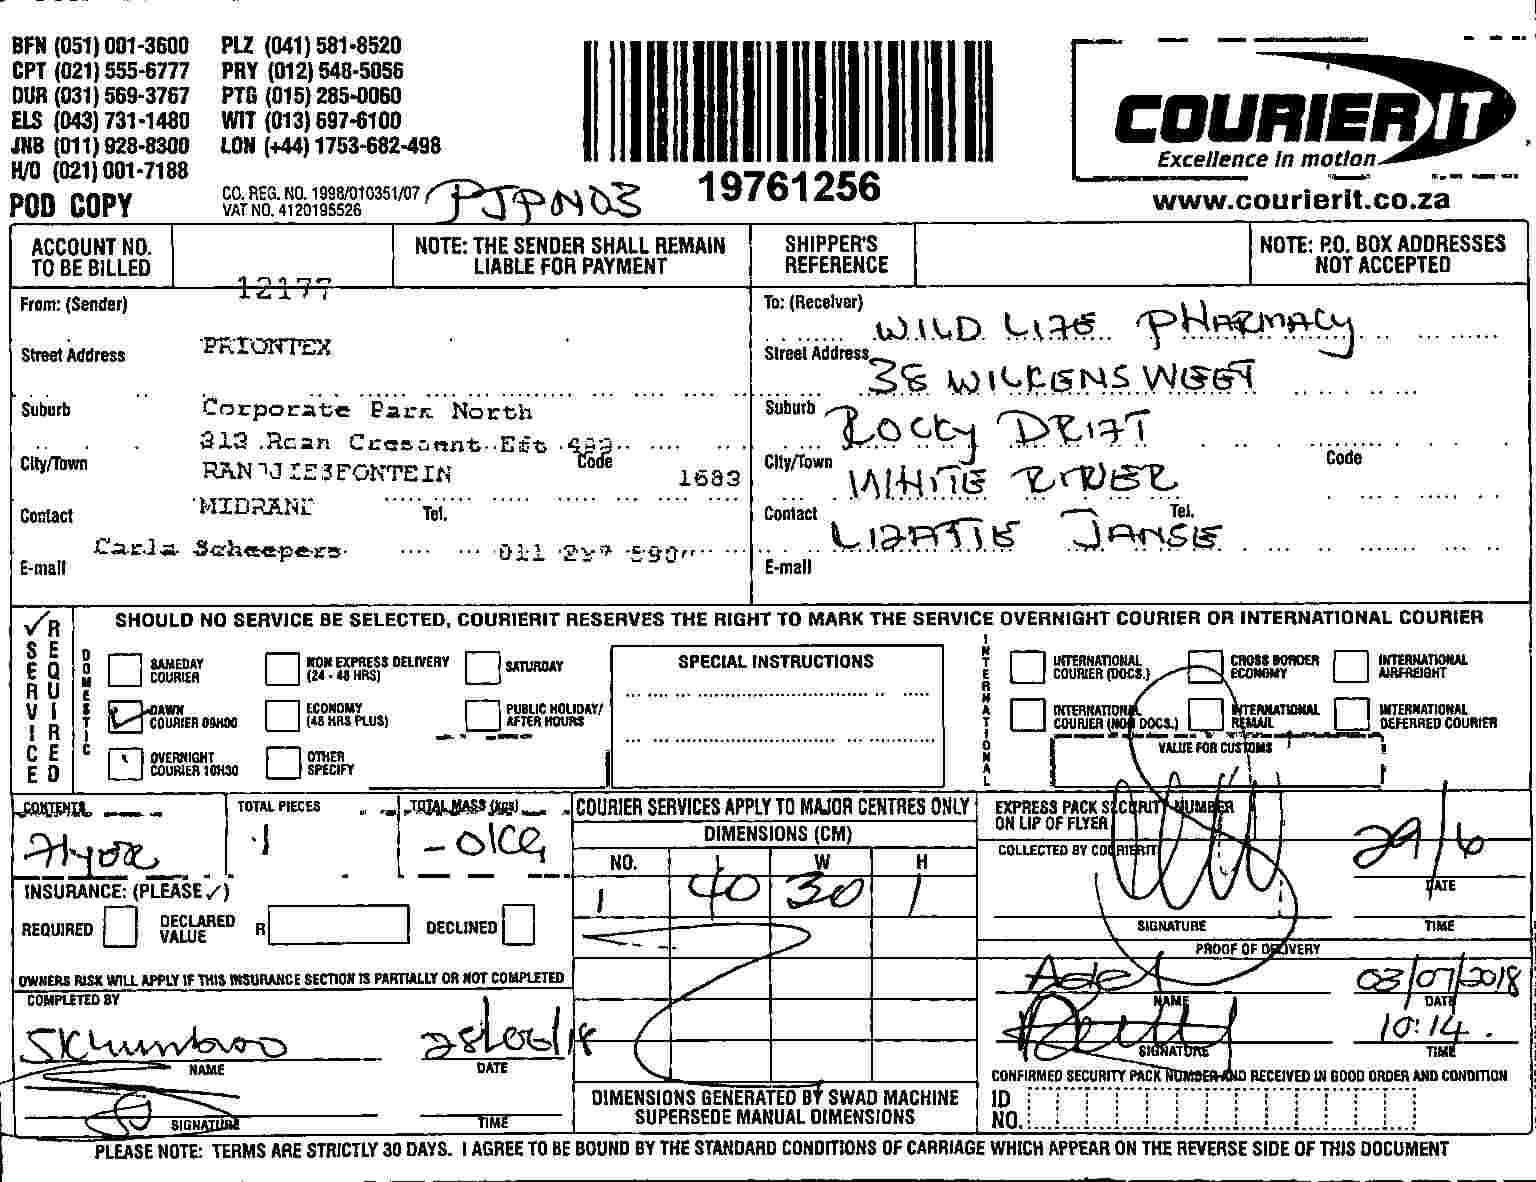 BFN (051) 001-3600 PLZ (041) 581-8520
CPT (021) 555-6777 PRY (012) 548-5056
DUR (031) 569-3767 PTG (015) 285-0060
ELS (043) 731-1480 WIT (013) 697-6100
JNB (011) 928-8300 LON (+44) 1753-682-498
H/O (021) 001-7188
POD COPY
CO. REG. NO. 1998/010351/07
VAT NO. 4120195526
19761256
COURIER IT
Excellence in motion
www.courierit.co.za
ACCOUNT NO. TO BE BILLED
12177
NOTE: THE SENDER SHALL REMAIN LIABLE FOR PAYMENT
SHIPPER'S REFERENCE
NOTE: P.O. BOX ADDRESSES NOT ACCEPTED
From: (Sender)
PRIONTEX
Street Address
Suburb Corporate Park North
313 Roan Cressent Est
City/Town RANDJIESFONTEIN Code 1683
MIDRAND
Contact Carla Scheepers Tel. 011
E-mail
To: (Receiver) WILD LIFE PHARMACY
Street Address 38 WILKENS WEET
Suburb ROCKY DRIFT
City/Town WHITE RIVER Code
Contact LIZATTE JANSE Tel.
E-mail
SERVICE REQUIRED
SHOULD NO SERVICE BE SELECTED, COURIERIT RESERVES THE RIGHT TO MARK THE SERVICE OVERNIGHT COURIER OR INTERNATIONAL COURIER
DOMESTIC
SAMEDAY COURIER
NON EXPRESS DELIVERY (24 - 48 HRS)
SATURDAY
DAWN COURIER 09H00
ECONOMY (48 HRS PLUS)
PUBLIC HOLIDAY/ AFTER HOURS
OVERNIGHT COURIER 10H30
OTHER SPECIFY
SPECIAL INSTRUCTIONS
INTERNATIONAL
INTERNATIONAL COURIER (DOCS.)
CROSS BORDER ECONOMY
INTERNATIONAL AIRFREIGHT
INTERNATIONAL COURIER (NON DOCS.)
INTERNATIONAL REMAIL
INTERNATIONAL DEFERRED COURIER
VALUE FOR CUSTOMS
CONTENTS
Flyer
TOTAL PIECES
1
TOTAL MASS (kgs)
INSURANCE: (PLEASE ✓)
REQUIRED DECLARED VALUE R DECLINED
OWNERS RISK WILL APPLY IF THIS INSURANCE SECTION IS PARTIALLY OR NOT COMPLETED
COMPLETED BY
28/06/18
NAME DATE
SIGNATURE TIME
COURIER SERVICES APPLY TO MAJOR CENTRES ONLY
DIMENSIONS (CM)
NO. L W H
1 40 30 1
DIMENSIONS GENERATED BY SWAD MACHINE SUPERSEDE MANUAL DIMENSIONS
EXPRESS PACK SECURITY NUMBER ON LIP OF FLYER
COLLECTED BY COURIERIT
29/6
DATE
SIGNATURE TIME
PROOF OF DELIVERY
Adel 03/07/2018
NAME DATE
10:14
SIGNATURE TIME
CONFIRMED SECURITY PACK NUMBER AND RECEIVED IN GOOD ORDER AND CONDITION
ID NO.
PLEASE NOTE: TERMS ARE STRICTLY 30 DAYS. I AGREE TO BE BOUND BY THE STANDARD CONDITIONS OF CARRIAGE WHICH APPEAR ON THE REVERSE SIDE OF THIS DOCUMENT